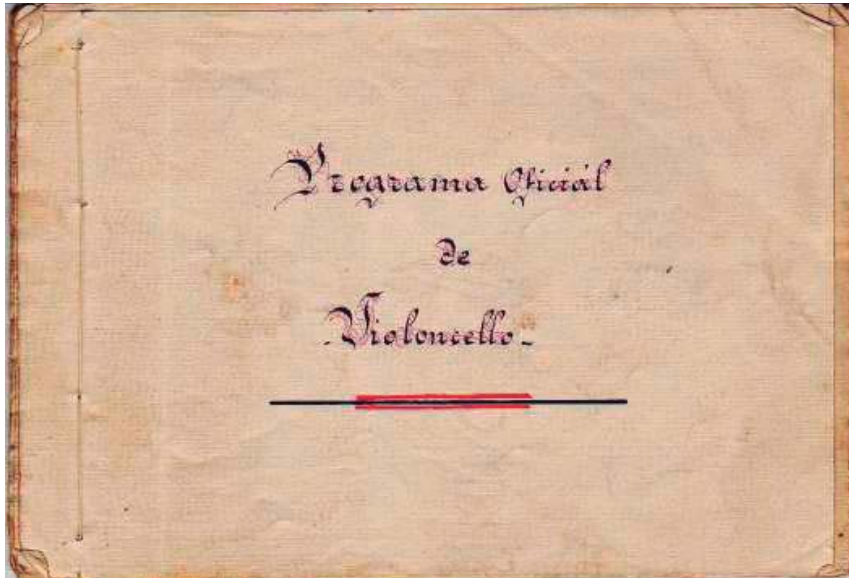 Programa Oficiál
de
-Violoncello-